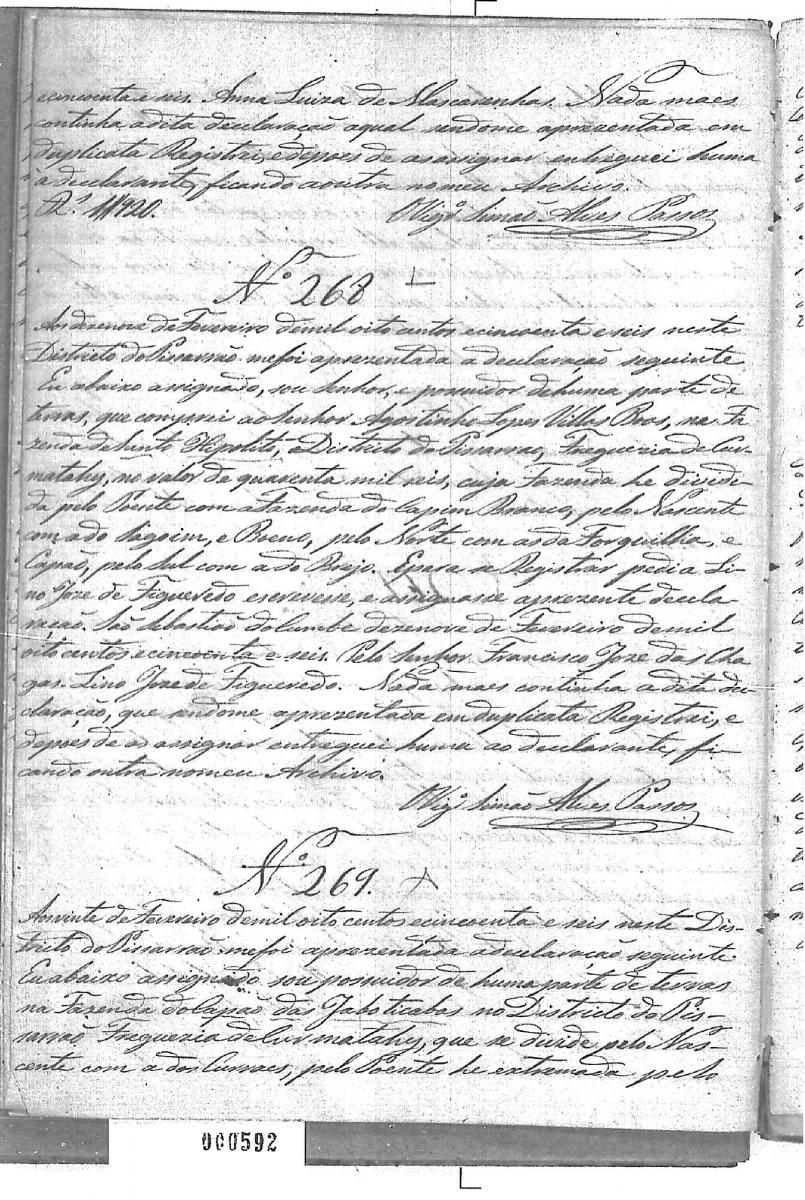 ecincoenta e seis. Anna Luiza de Mascarenhas. Nada maes
continha adita declaração aqual sendome aprezentada em
duplicata Registrei, edepoes de as assignar entreguei huma
à declarante, ficando aoutra nomeu Archivo.
Vigr.º Simão Alves Passos
Nº 268
Aos dezenove de Fevereiro demil oito centos ecincoenta e seis neste
Districto do Pissarrão mefoi aprezentada a declaração seguinte
Eu abaixo assignado, sou Senhor, e possuidor dehuma parte de
terras, que comprei ao Senhor Agostinho Lopes Villas Boas, na Fa-
zenda de Santo Hipolito, e Districto do Pissarrão, Freguezia de Cur-
matahy, no valor de quarenta mil reis, cuja Fazenda he dividi-
da pelo Poente com a Fazenda do Capim Branco, pelo Nascente
com a do Sagoim, e Bueno, pelo Norte com as da Forquilha, e
Capão, pelo Sul com a do Brejo. Epara se Registrar pedi a Li-
no Joze de Figueredo escrevesse, e assignasse aprezente decla-
ração. São Sebastião do dezenove de Fevereiro demil
oito centos ecincoenta e seis. Pelo Senhor Francisco Joze das Cha-
gas. Lino Joze de Figueredo. Nada maes continha a dita de-
claração, que sendome aprezentada em duplicata Registrei, e
depoes de as assignar entreguei huma ao declarante, fi-
cando outra nomeu Archivo.
Vigr.º Simão Alves Passos
Nº 269.
Aos vinte de Fevereiro demil oito centos ecincoenta e seis neste Dis-
tricto do Pissarrão mefoi aprezentada a declaração seguinte.
Eu abaixo assignado sou possuidor de huma parte de terras
na Fazenda do Capão das Jaboticabas no Districto do Pis-
sarrão Freguezia de Curmatahy, que se divide pelo Nas-
cente com a dos Curraes, pelo Poente he extremada pelo
000592